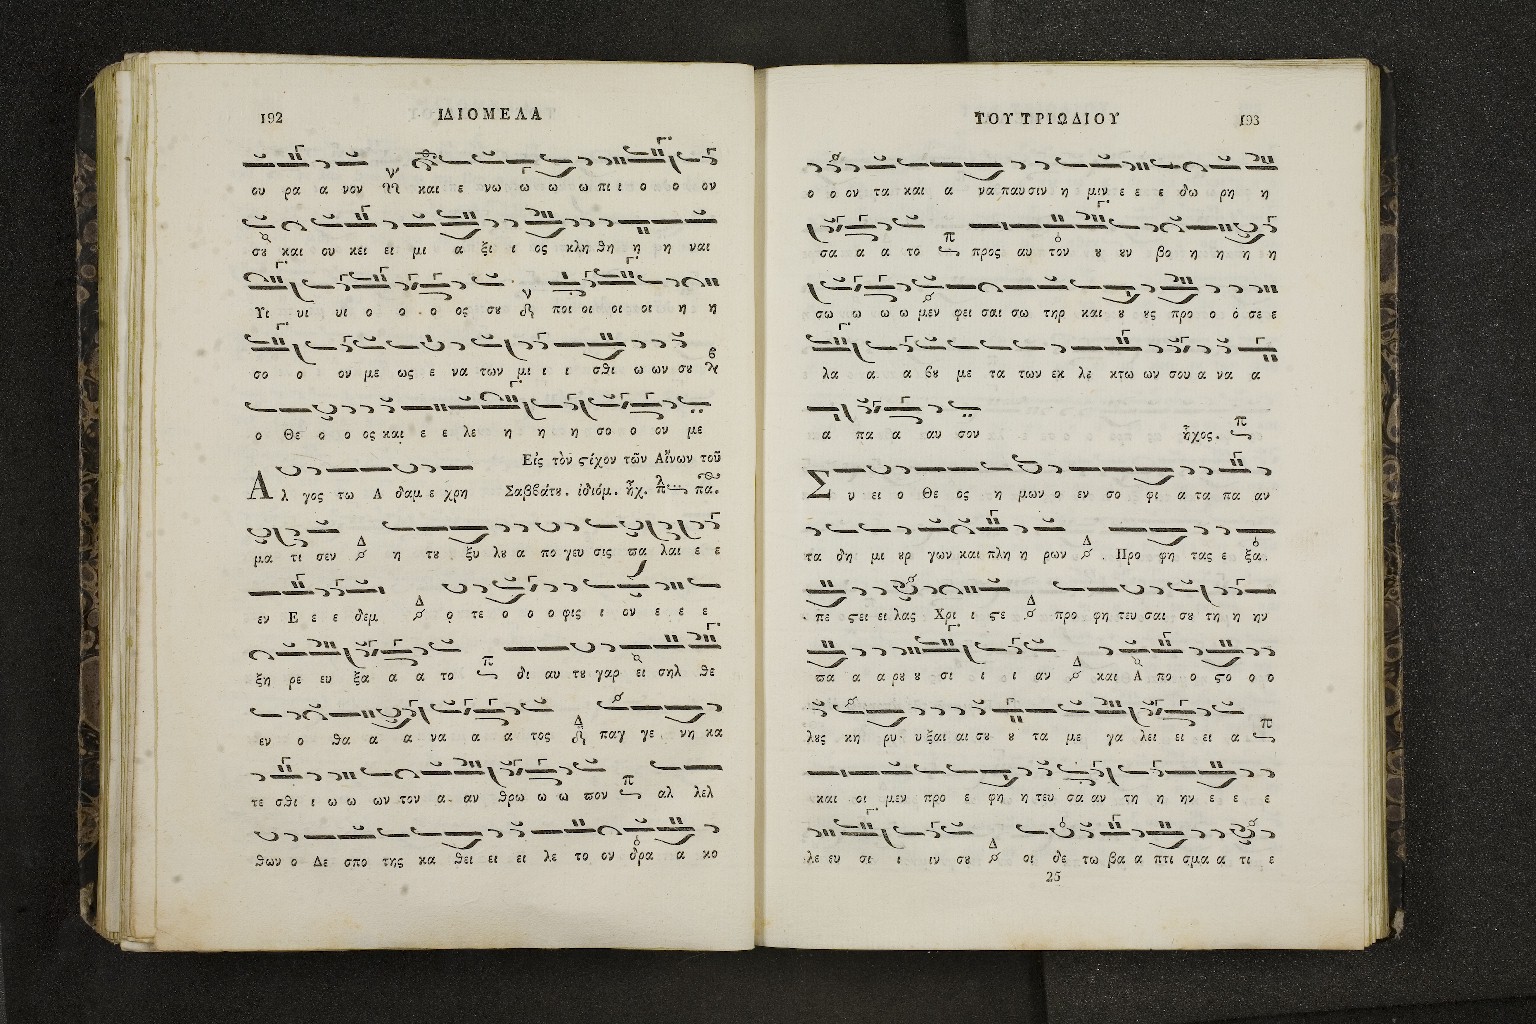 192
ΙΔΙΟΜΕΛΑ
ου ρα α νον και ε νω ω ω ω πι ι ο ο ον
σȣ και ου κει ει μι α ξι ι ος κλη θη η η ναι
Υι υι υι ο ο ο ος σȣ ποι οι οι οι η η
σο ο ον με ως ε να των μι ι ι σθι ω ων σȣ
ο Θε ο ο ος και ε ε λε η η η σο ο ον με
Εἰς τὸν ϛίχον τῶν Αἴνων τοῦ
Α λ γος τω Α δαμ ε χρη Σαββάτȣ. ἰδιόμ. ἦχ. πα.
μα τι σεν η τȣ ξυ λȣ α πο γευ σις πα λαι ε ε
εν Ε ε ε δεμ ο τε ο ο ο φις ι ον ε ε ε
ξη ρε ευ ξα α α το δι αυ τȣ γαρ ει σηλ θε
εν ο θα α α να α α τος παγ γε νη κα
τε σθι ι ω ω ων τον α αν θρω ω ω πον αλ λελ
θων ο Δε σπο της κα θει ει ει λε το ον δρα α κο
ΤΟΥ ΤΡΙΩΔΙΟΥ
193
ο ο ον τα και α να παυσιν η μιν ε ε ε δω ρη η
σα α α το προς αυ τον ȣ ȣν βο η η η η
σω ω ω ω μεν φει σαι σω τηρ και ȣ ȣς προ ο ο σε ε
λα α α βȣ με τα των εκ λε κτω ων σου α να α
α πα α αυ σον ἦχος.
Σ υ ει ο Θε ος η μων ο εν σο φι α τα πα αν
τα δη μι ȣρ γων και πλη η ρων Προ φη τας ε ξα
πε ϛει ει λας Χρι ι ϛε προ φη τευ σαι σȣ τη η ην
πα α α ρȣ ȣ σι ι ι αν και Α πο ο ϛο ο ο
λȣς κη ρυ υ ξαι αι σȣ ȣ τα με γα λει ει ει α
και οι μεν προ ε φη η τευ σα αν τη η ην ε ε ε
λε ευ σι ι ιν σȣ οι δε τω βα α πτι σμα α τι ε
25